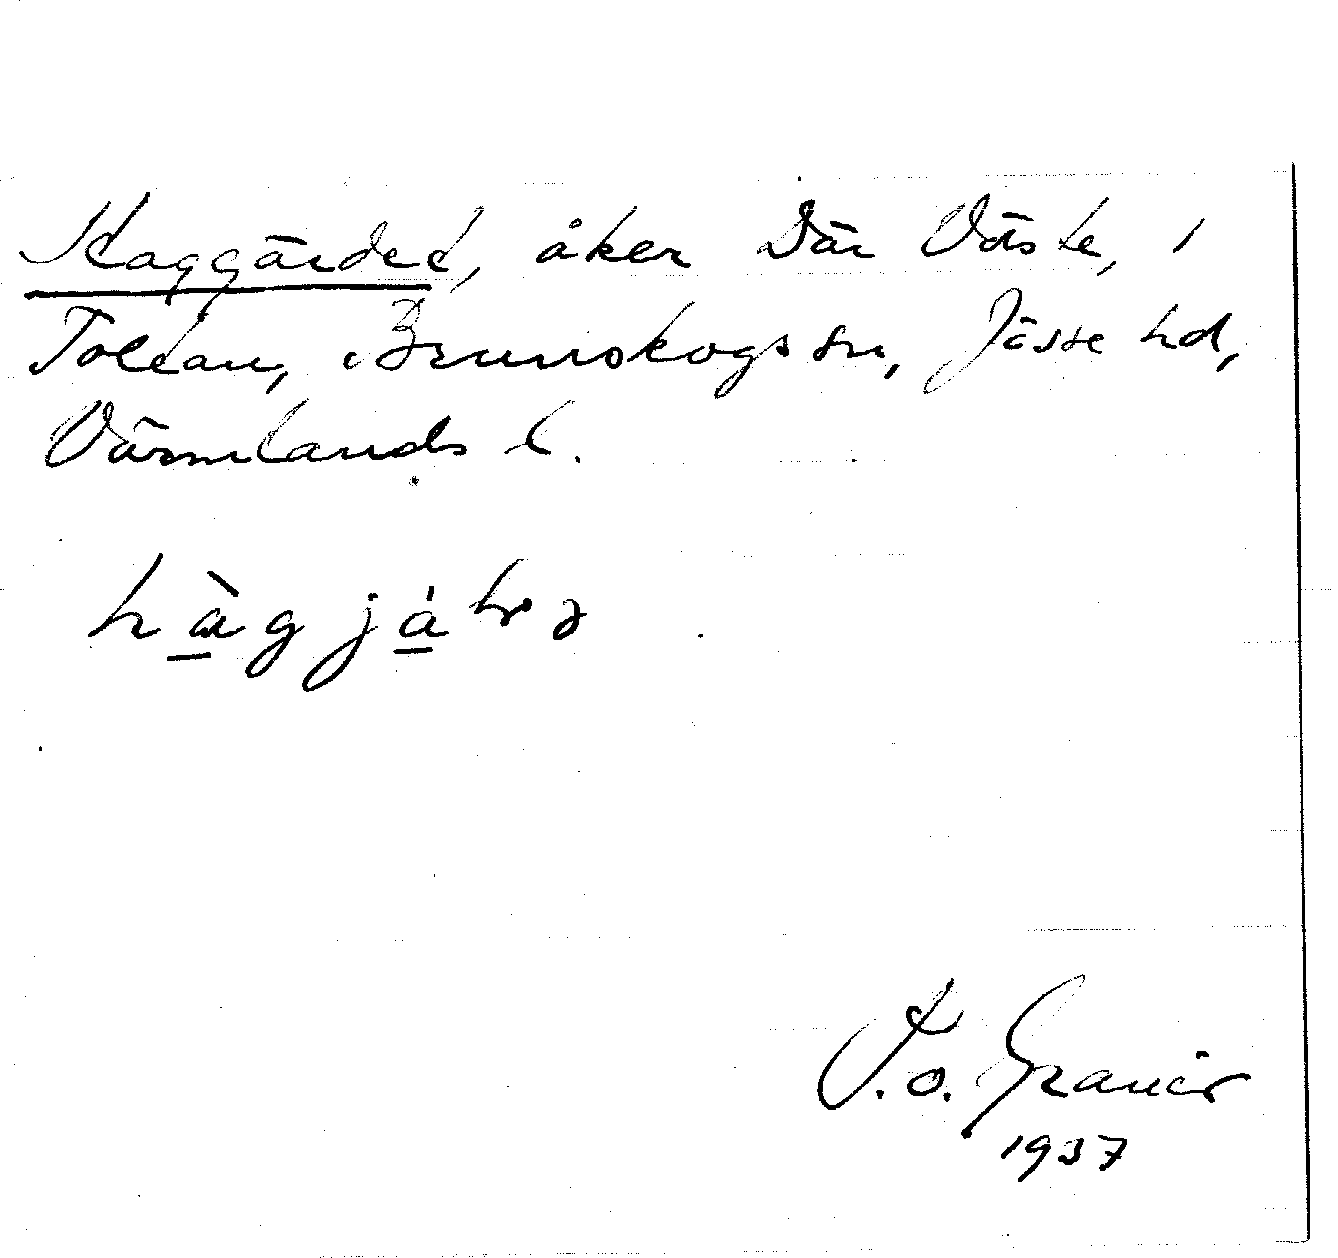 Haggärdet, åker Där Väste, i
Tolean, Brunskogs sn, Jösse hd,
Värmlands l.
hàgjá
T. o. Granér
1937